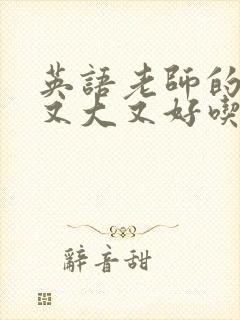 英語老師的
又大又好喫
辭音甜